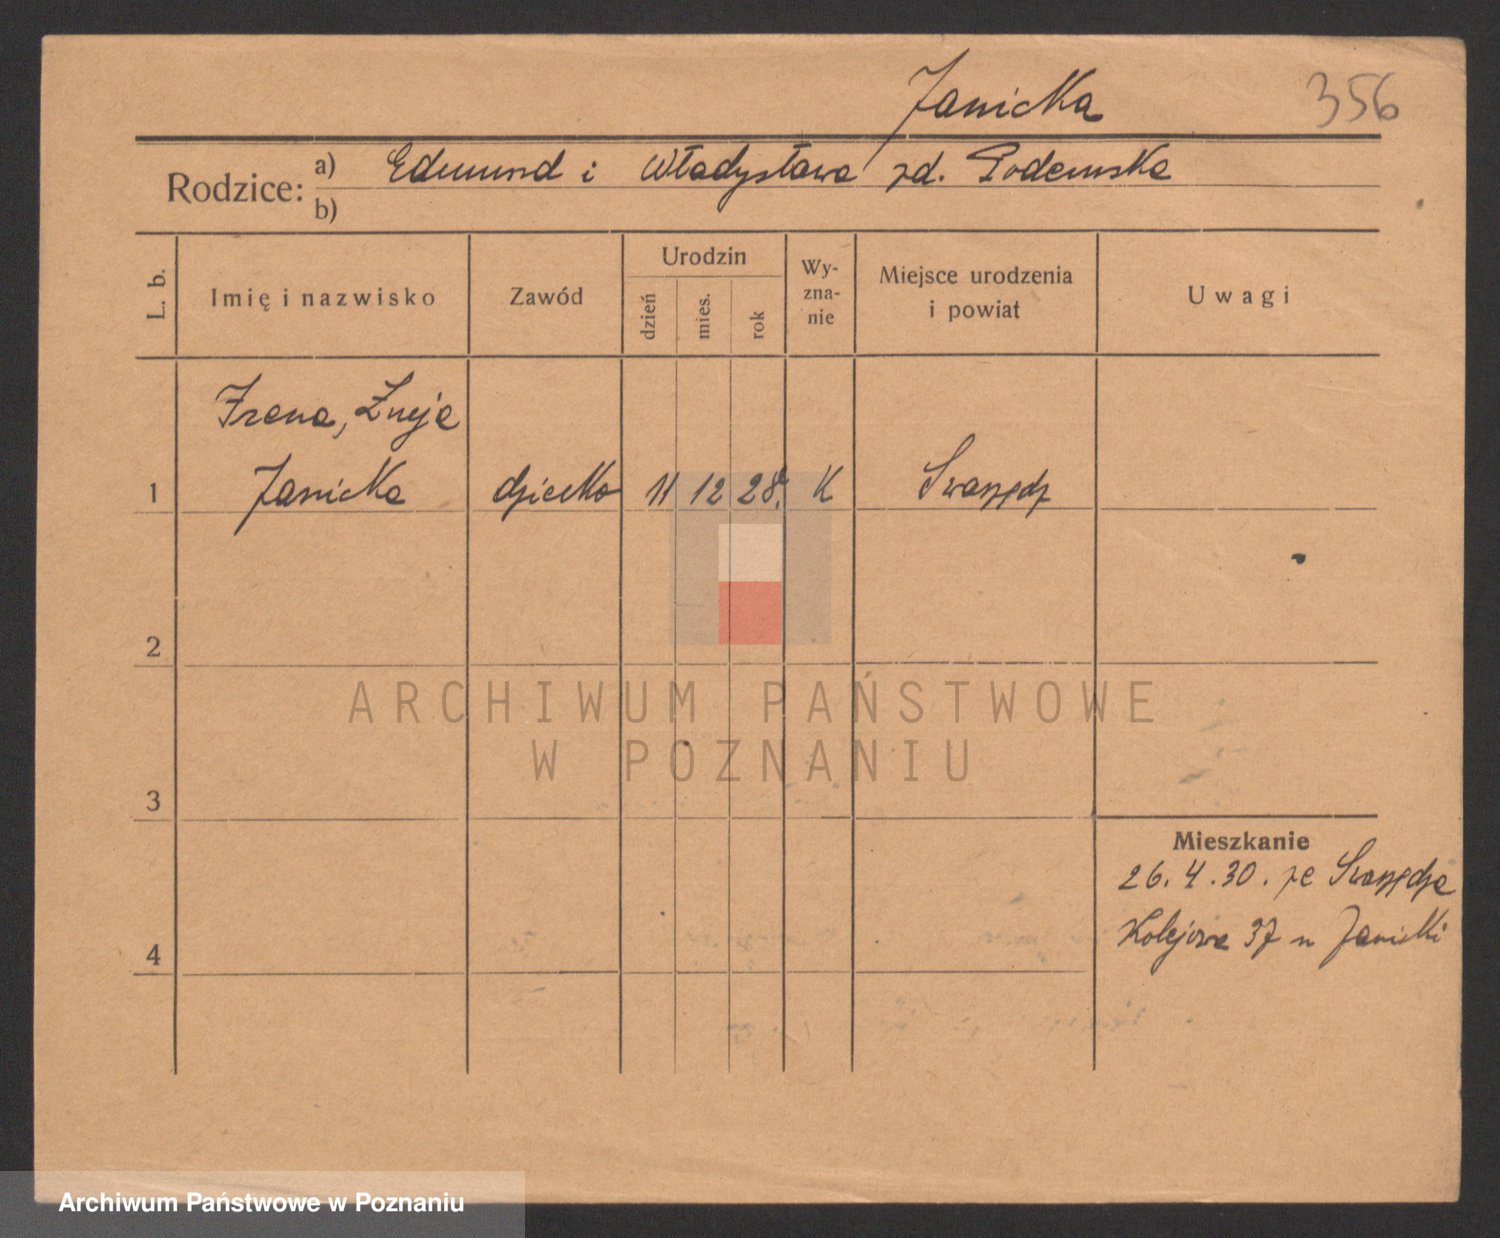 Janicka
356
Rodzice: a) Edmund i Władysława zd. Podemska
b)
L. b.
Imię i nazwisko
Zawód
Urodzin
dzień
mies.
rok
Wy-
zna-
nie
Miejsce urodzenia
i powiat
Uwagi
Irena,
1 Janicka dziecko 11 12 28. K Swarzędz
2
ARCHIWUM PAŃSTWOWE
W POZNANIU
3
Mieszkanie
26. 4. 30. ze Swarzędza
4 Kolejowa 37 u Janicki
Archiwum Państwowe w Poznaniu